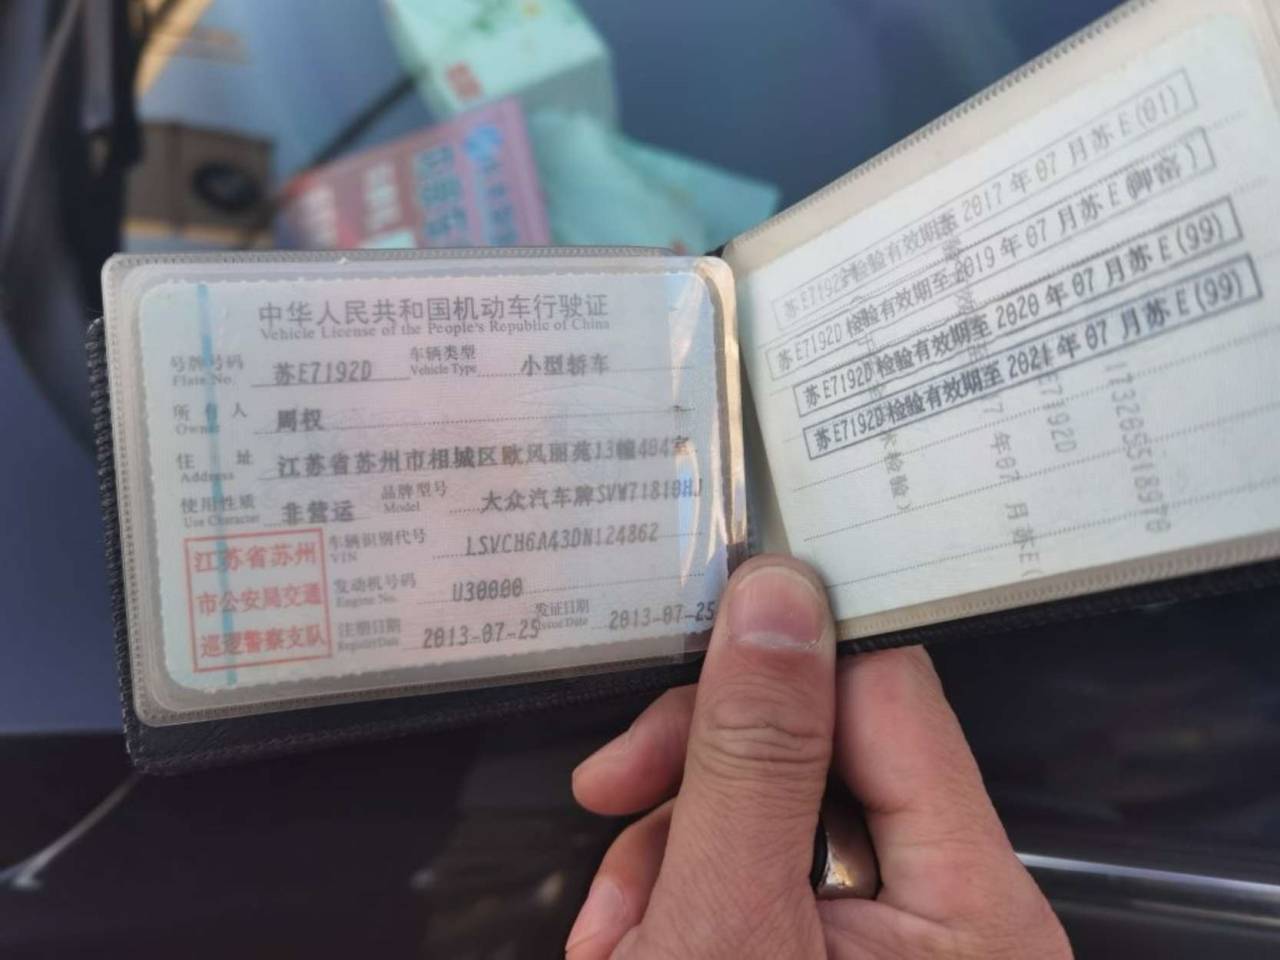 中华人民共和国机动车行驶证
Vehicle License of the People's Republic of China
号牌号码 苏E7192D 车辆类型 小型轿车
Plate No. Vehicle Type
所有人 周权
Owner
住址 江苏省苏州市相城区欧风丽苑13幢404室
Address
使用性质 非营运 品牌型号 大众汽车牌SVW71810HJ
Use Character Model
江苏省苏州
市公安局交通
巡逻警察支队
车辆识别代号 LSVCH6A43DN124862
VIN
发动机号码 U30000
Engine No.
注册日期 2013-07-25 发证日期 2013-07-25
Register Date Issue Date
苏E7192D检验有效期至2017年07月苏E(01)
苏E7192D检验有效期至2019年07月苏E
苏E7192D检验有效期至2020年07月苏E(99)
苏E7192D检验有效期至2021年07月苏E(99)